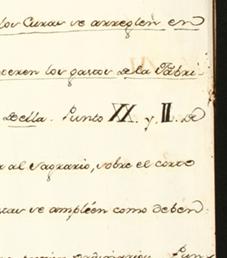 los Curas se arreglen en
oceren los gastos de la Fabri-
Della. Punto XX. y II. De
r al Sagrario, sobre el corto
se ampléen como deben:
Pun